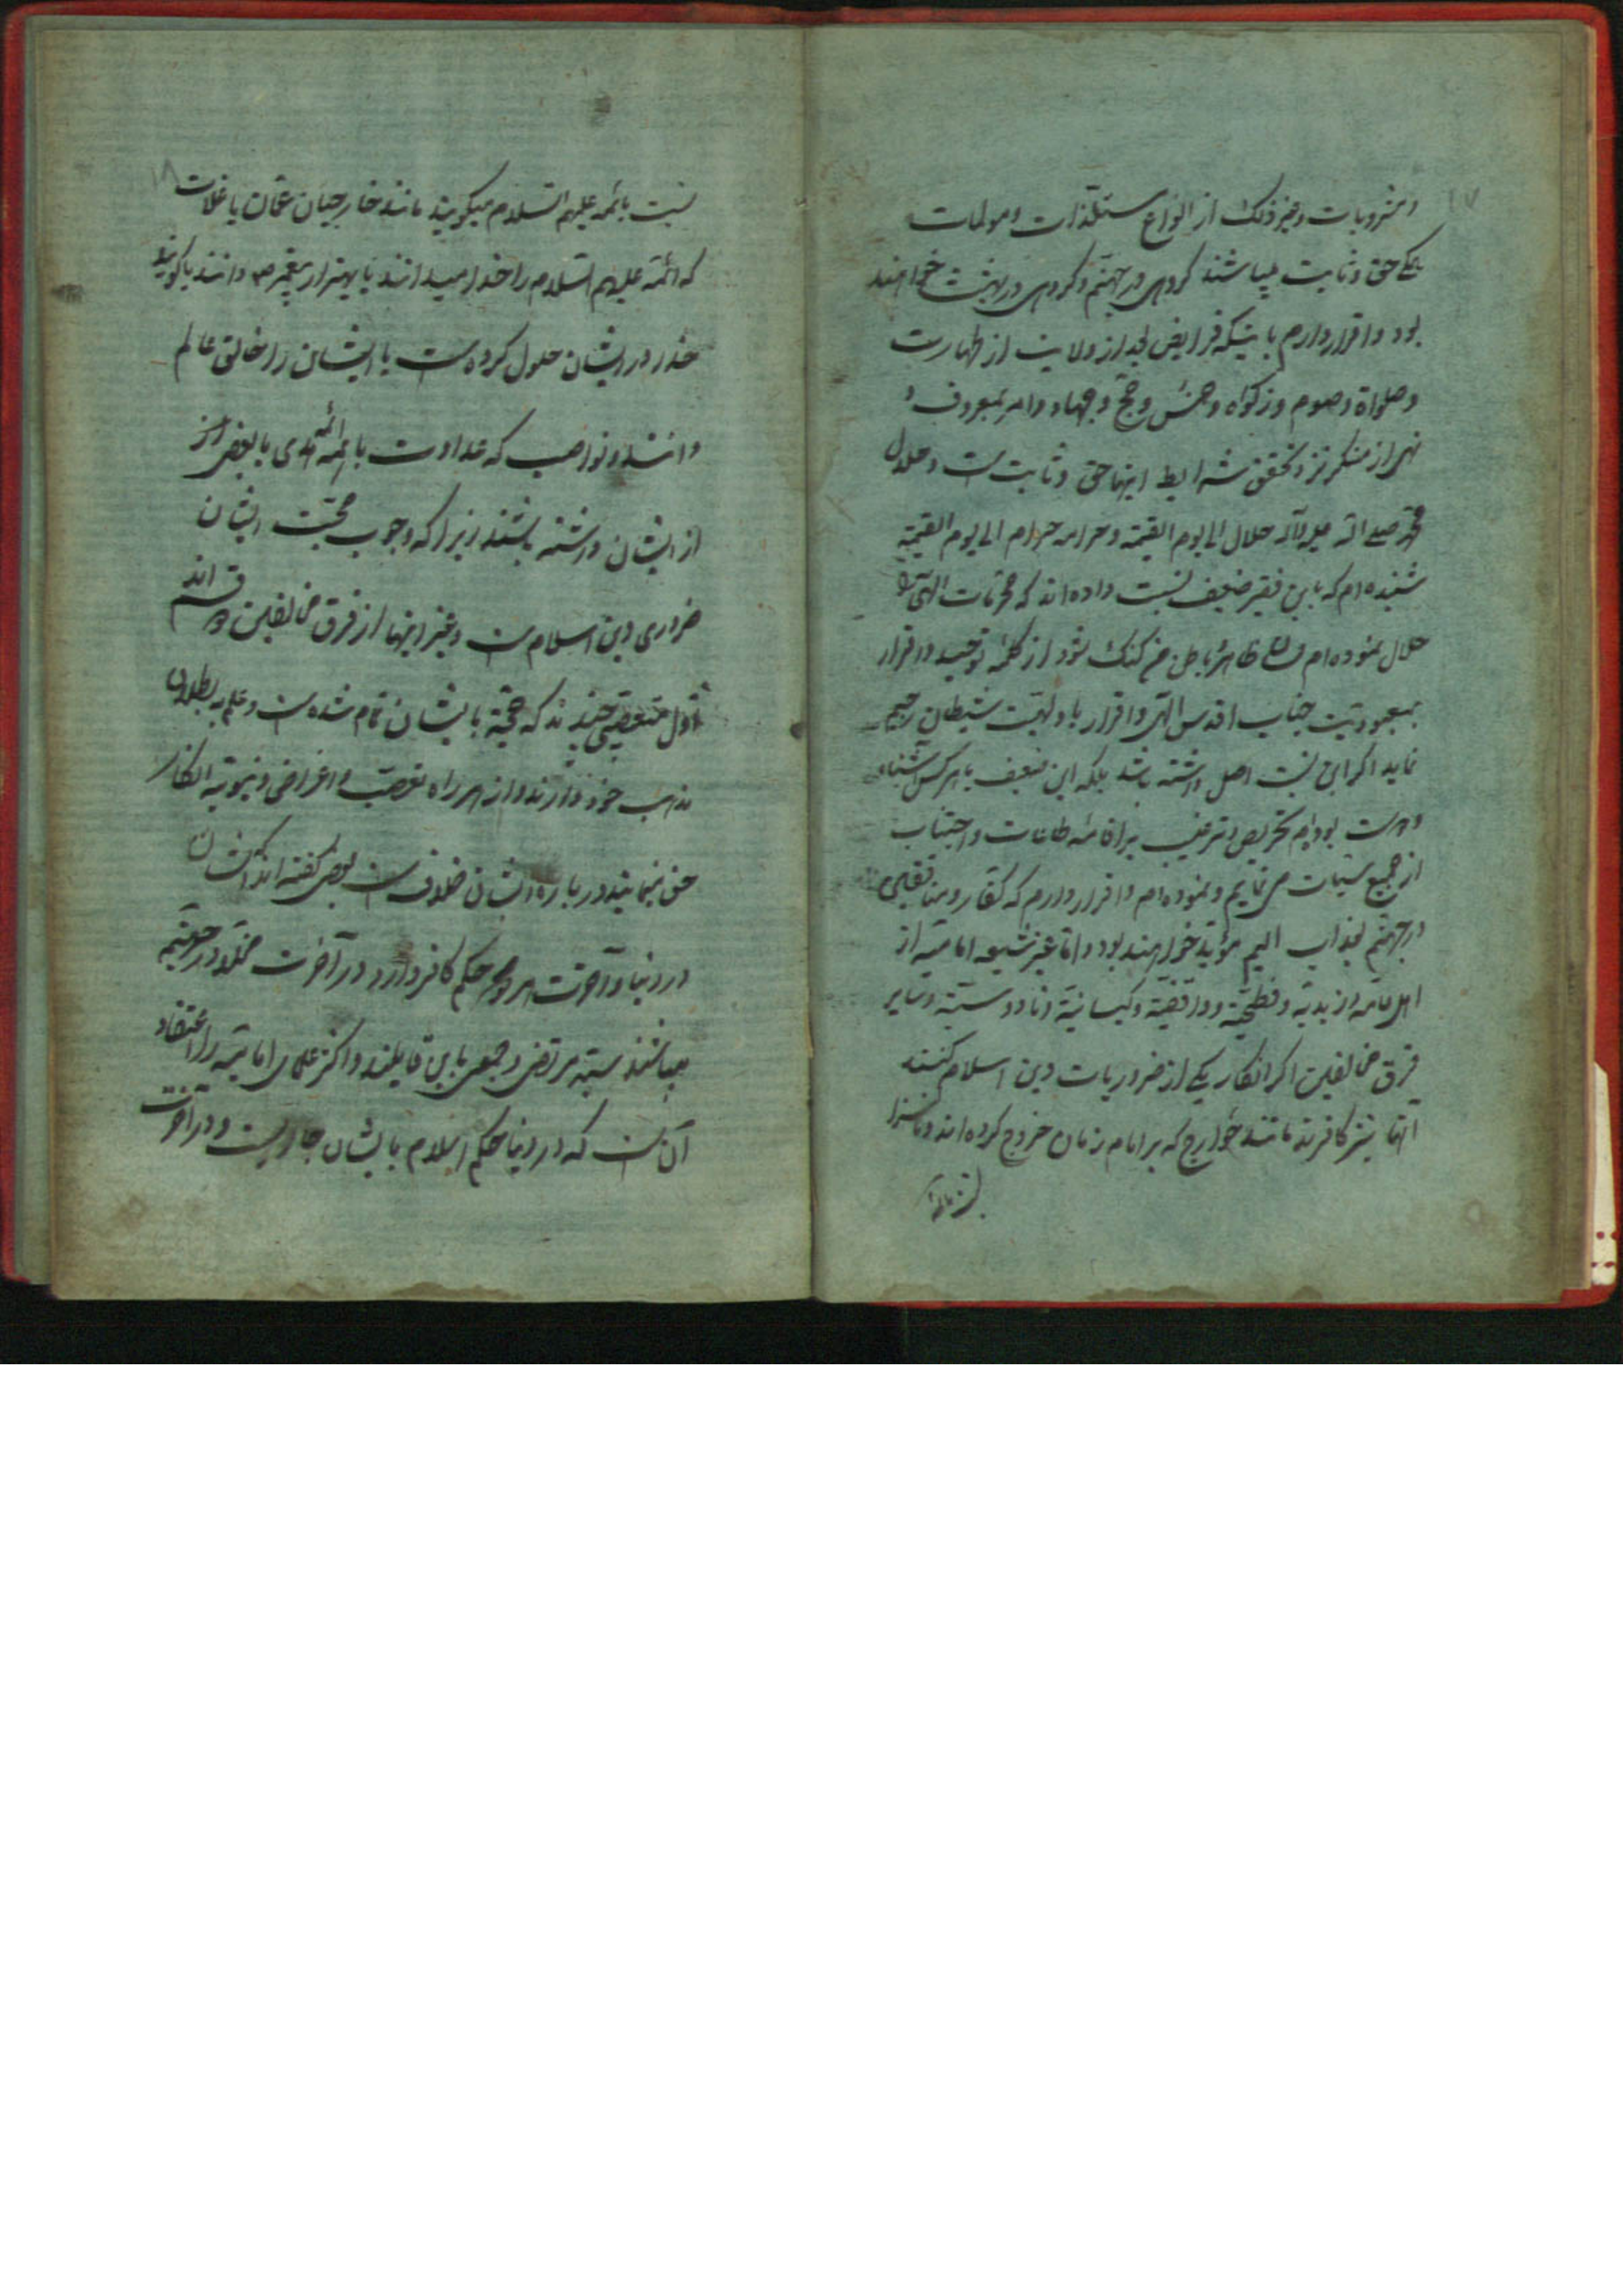 ۱۷
و مشروبات و غیر ذلک از انواع مستلذات و مولمات
همکی حق و ثابت میباشند کروهی در جهنم و کروهی در بهشت خواهند
بود و اقرار دارم باینکه فرایض بعد از ولایت از طهارت
و صلواة و صوم و زکواة و خمس و حج و جهاد و امر بمعروف و
نهی از منکر نزد تحقق شرایط اینها حق و ثابتست و حلال
محمد صلی الله علیه وآله حلال الی یوم القیمة و حرامه حرام الی یوم القیمة
شنیده‌ام که باین فقیر ضعیف نسبت داده‌اند که محرمات الهی را
حلال نموده‌ام ظاهر باطن کنک شود از کلمه توحید و اقرار
بمعبودیت جناب اقدس الهی و اقرار بالوهیت شیطان رجیم
نماید اکر این نسبت اصل داشته باشد بلکه این ضعیف با هر کس آشنا و
دوست بوده‌ام تحریص و ترغیب بر اقامه طاعات و اجتناب
از جمیع سیئات می نمایم و نموده‌ام و اقرار دارم که کفار و منافقین
در جهنم بعذاب الیم مؤبد خواهند بود و اما غیر شیعه امامیه از
اهل عامه و زیدیه و فطحیه و واقفیه و کیسانیه و ناووسیه و سایر
فرق مخالفین اکر انکار یکی از ضروریات دین اسلام کنند
آنها نیز کافرند مانند خوارج که بر امام زمان خروج کرده‌اند و ناسزا
نسبت بائمه
۱۸
نسبت بائمه علیهم السلام میکویند مانند خارجیان عمان یا غلات
که ائمه علیهم السلام را خدا میدانند یا بهتر از پیغمبر ص دانند یا کویند
خدا در ایشان حلول کرده‌ست یا ایشان را خالق عالم
دانند و نواصب که عداوت با ائمه هدی یا بعض
از ایشان داشته باشند زیرا که وجوب محبت ایشان
ضروری دین اسلام‌ست و غیر اینها از فرق مخالفین دو قسم اند
اول متعصبی چندند که حجة بایشان تمام شده‌ست و علم به بطلان
مذهب خود دارند و از راه تعصب و اغراض دنیویه انکار
حق مینمایند در باره ایشان خلاف‌ست بعضی کفته اند ایشان
در دنیا و آخرت هر دو حکم کافر دارد در آخرت مخلد در جهنم
میباشند سید مرتضی و جمعی باین قایلند و اکثر علمای امامیه را اعتقاد
آن‌ست که در دنیا حکم اسلام بایشان جاریست و در آخرت